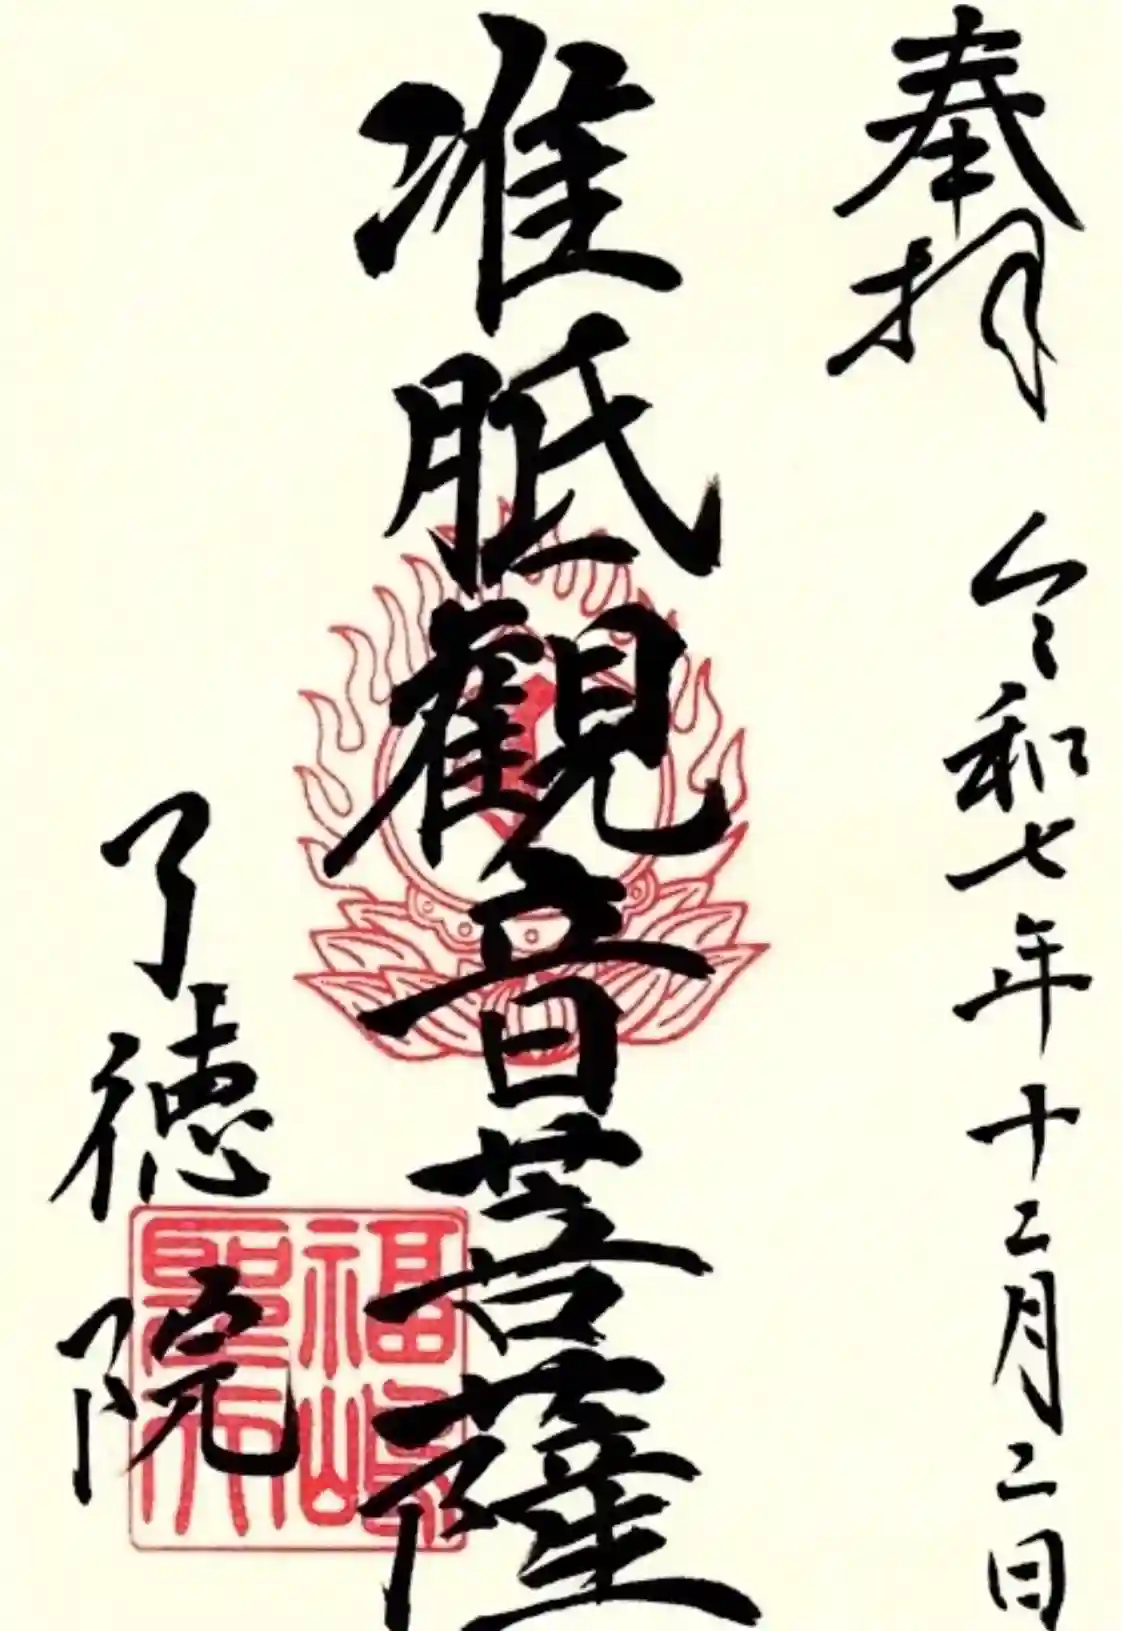 奉拝 令和七年十二月二日
准胝觀音菩薩
了徳院
福嶋
聖天